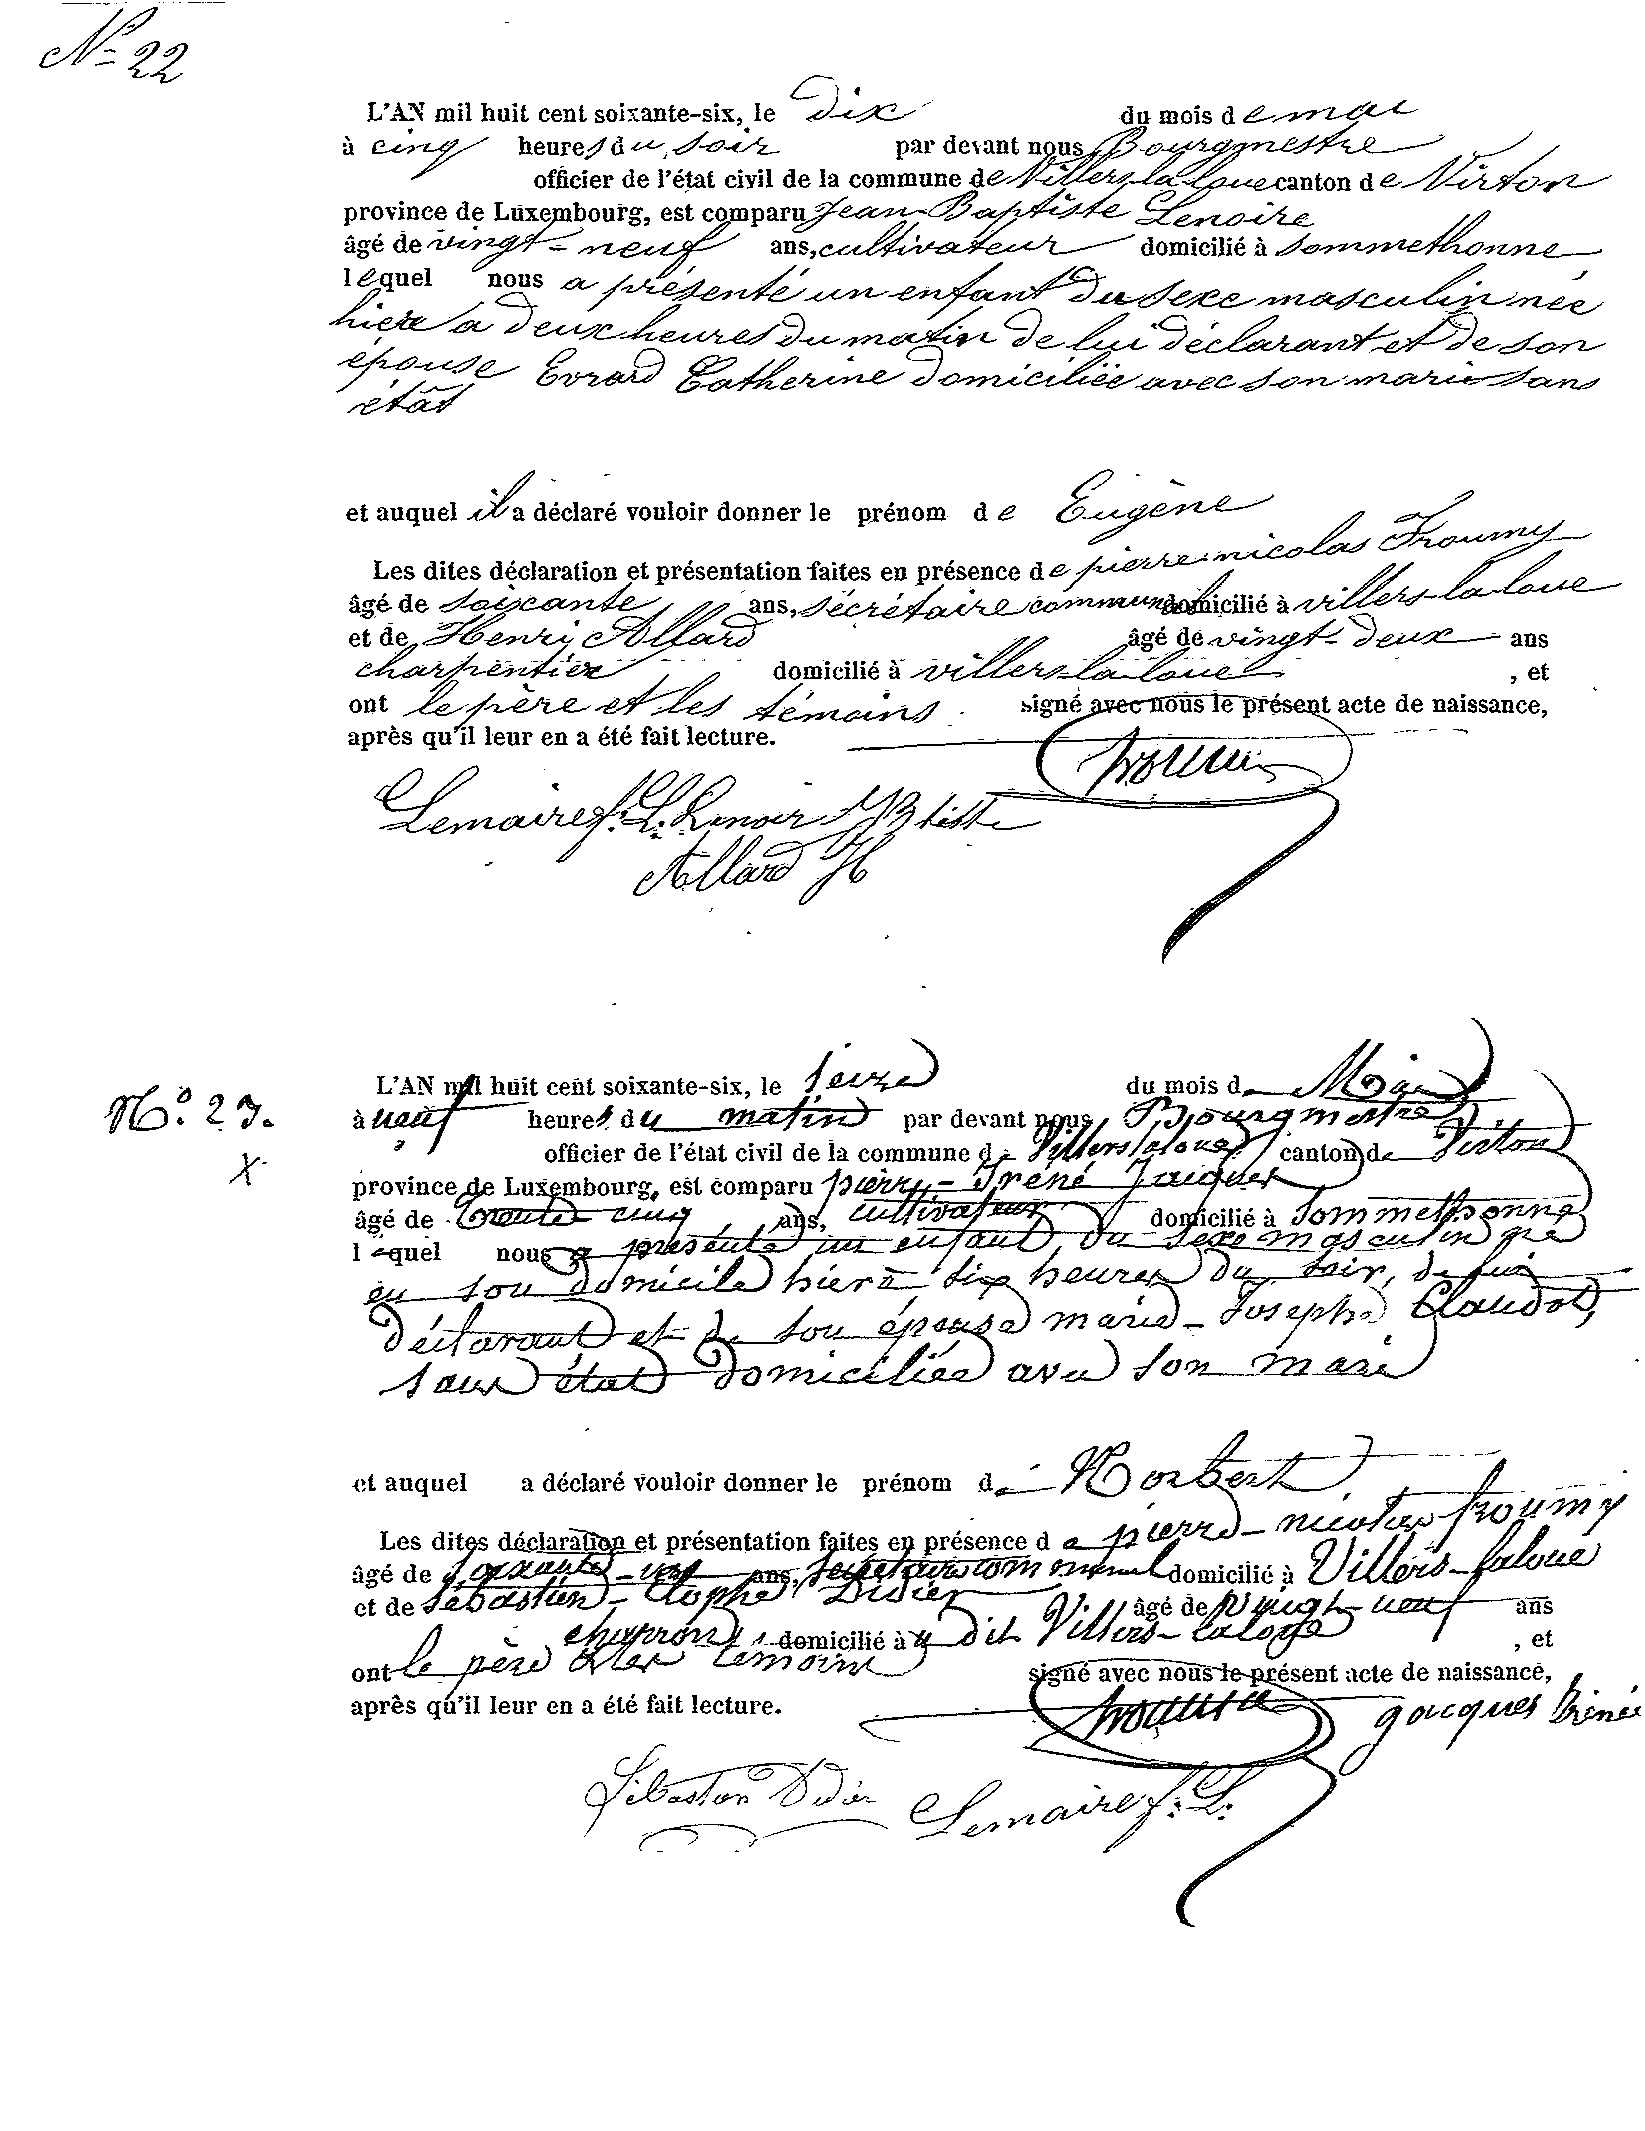 N° 22
L'AN mil huit cent soixante-six, le dix du mois de mai
à cinq heures du soir par devant nous Bourgmestre
officier de l'état civil de la commune de Villers-la-loue canton de Virton
province de Luxembourg, est comparu Jean-Baptiste Lenoire
âgé de vingt-neuf ans, cultivateur domicilié à Sommethonne
lequel nous a présenté un enfant du sexe masculin née
hier a deux heures du matin de lui déclarant et de son
épouse Evrard Catherine domiciliée avec son marie sans
état
et auquel il a déclaré vouloir donner le prénom de Eugène
Les dites déclaration et présentation faites en présence de pierre-nicolas Froumy
âgé de soixante ans, sécrétaire communal domicilié à villers-la-loue
et de Henri Allard âgé de vingt-deux ans
charpentier domicilié à villers-la-loue , et
ont le père et les témoins signé avec nous le présent acte de naissance,
après qu'il leur en a été fait lecture.
froumy
Lemaire f. L. Lenoir JBtiste
Allard H
L'AN mil huit cent soixante-six, le seize du mois de Mai
N° 23.
à neuf heures du matin par devant nous Bourgmestre
officier de l'état civil de la commune de Villers laloue canton de Virton
X
province de Luxembourg, est comparu pierre-Irené Jacques
âgé de trente cinq ans, cultivateur domicilié à Sommethonne
lequel nous a présenté un enfant du sexe masculin né
en son domicile hier à six heures du soir, de lui
déclarant et de son épouse marie-Josephe Claudot,
sans état domiciliée avec son mari
et auquel a déclaré vouloir donner le prénom de Norbert
Les dites déclaration et présentation faites en présence de pierre-nicolas froumy
âgé de soixante ans, secrétaire communal domicilié à Villers-laloue
et de Sébastien- Didier âgé de vingt-neuf ans
domicilié à u dit Villers-laloue , et
ont le père et les témoins signé avec nous le présent acte de naissance,
après qu'il leur en a été fait lecture.
froumy jacques Irénée
Sébastien Didier Lemaire f. L.